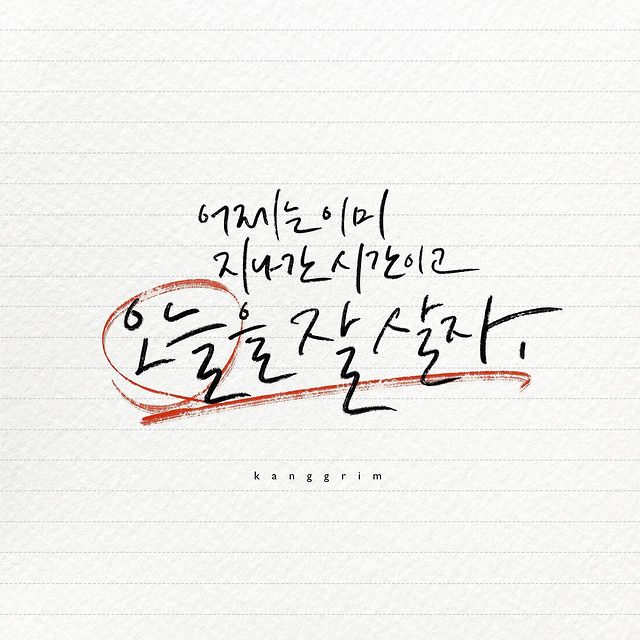 어제는 이미
지나간 시간이고
오늘을 잘 살자.
kanggrim